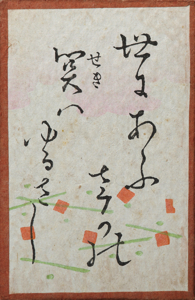 世にあふ
さかの
関ハ
せき
ゆるさし